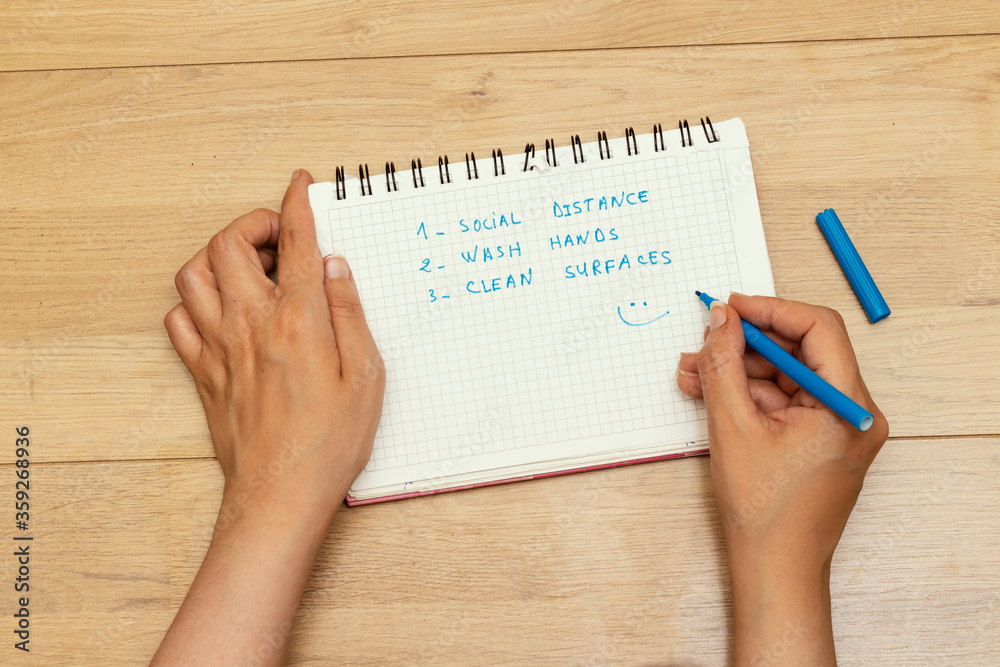 1- SOCIAL DISTANCE
2- WASH HANDS
3- CLEAN SURFACES
Adobe Stock | #359268936